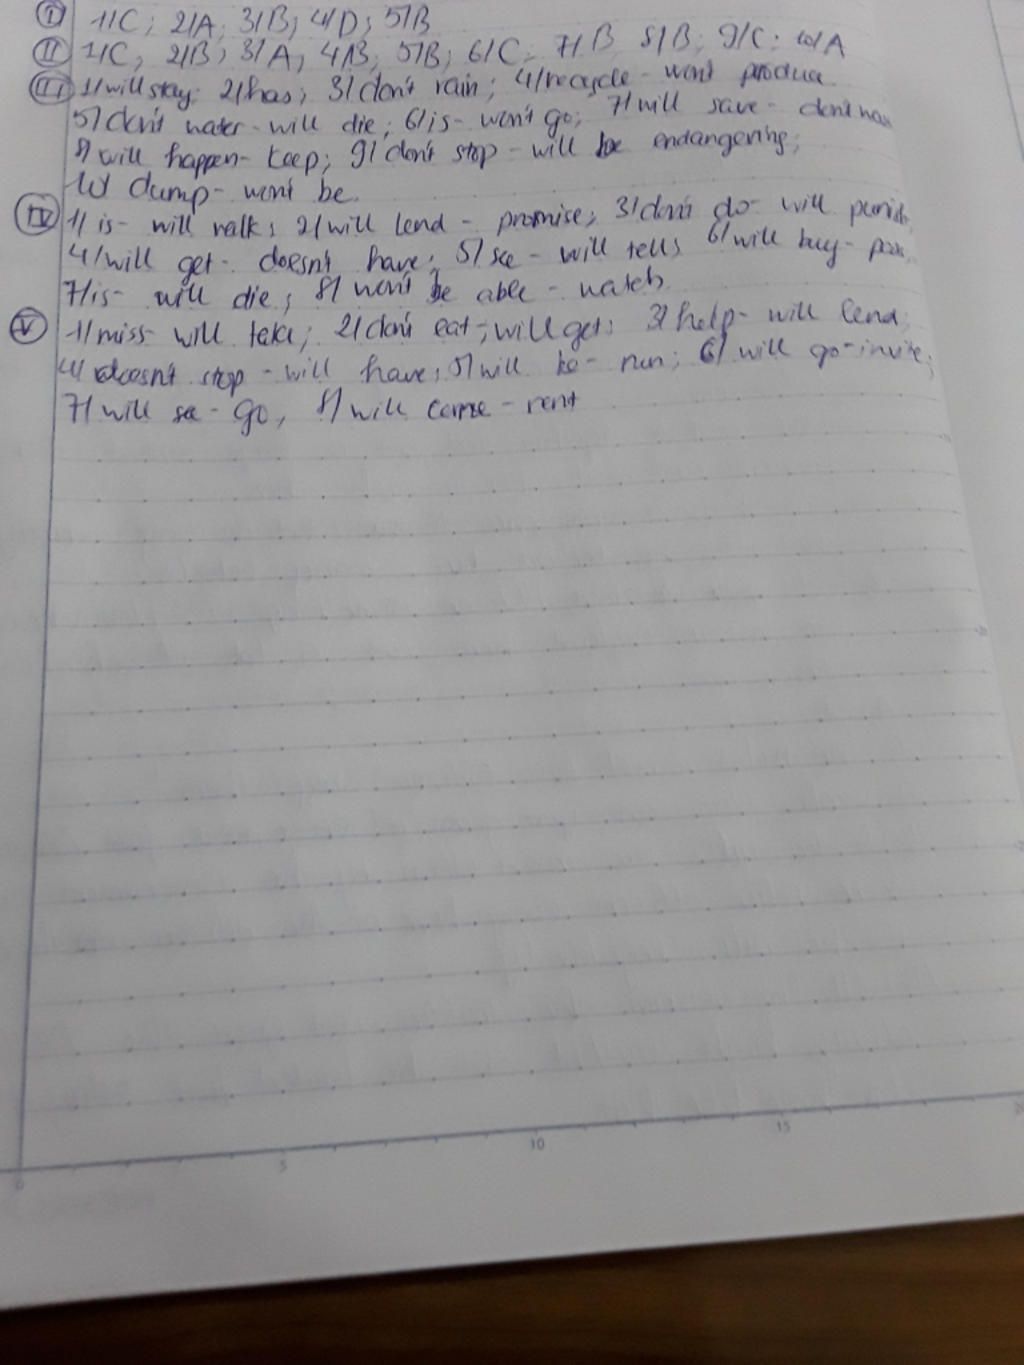 I 1/C; 2/A; 3/B; 4/D; 5/B
II 1/C, 2/B; 3/A, 4/B; 5/B; 6/C; 7/B 8/B; 9/C; 10/A
III 1/will stay; 2/has; 3/don't rain; 4/recycle - won't
5/don't water - will die; 6/is - won't go; 7/will save - don't
8/ will happen - keep; 9/ don't stop - will be endangering;
10/ dump - won't be.
IV 1/ is - will walk; 2/will lend - promise; 3/don't do - will punish
4/will get - doesn't have; 5/ see - will tell; 6/will buy -
7/is - will die; 8/ won't be able - watch
V 1/miss - will take; 2/don't eat - will get; 3/help - will lend;
4/ doesn't stop - will have; 5/will be - run; 6/ will go - invite;
7/ will see - go, 8/ will come - rent
5
10
15